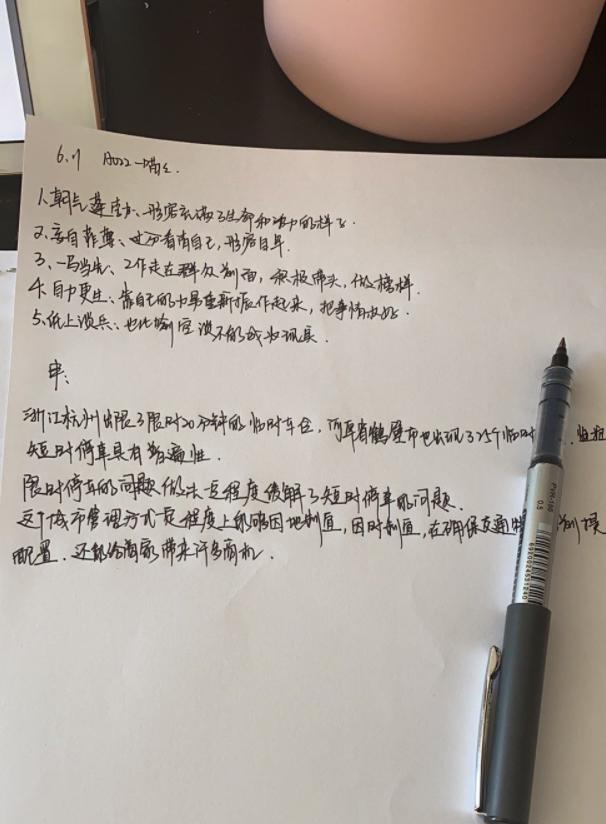 6.11
1.朝气蓬勃:形容充满了生命和活力的样子.
2.妄自菲薄:过分看轻自己,形容自卑.
3、一马当先:工作走在群众前面,积极带头,做榜样.
4.自力更生:靠自己的力量重新振作起来,把事情做好.
5.纸上谈兵:也比喻空谈不能成为现实.
申:
浙江杭州出限了限时20分钟的临时车位,河南省鹤壁市也出现了25个临时
短时停车具有普遍性.
限时停车的问题做法一定程度缓解了短时停车的问题.
这个城市管理方式一定程度上能够因地制宜,因时制宜,在确保交通 前提
配置.还能给商家带来许多商机.
PVR-100
0.5
4970024631240